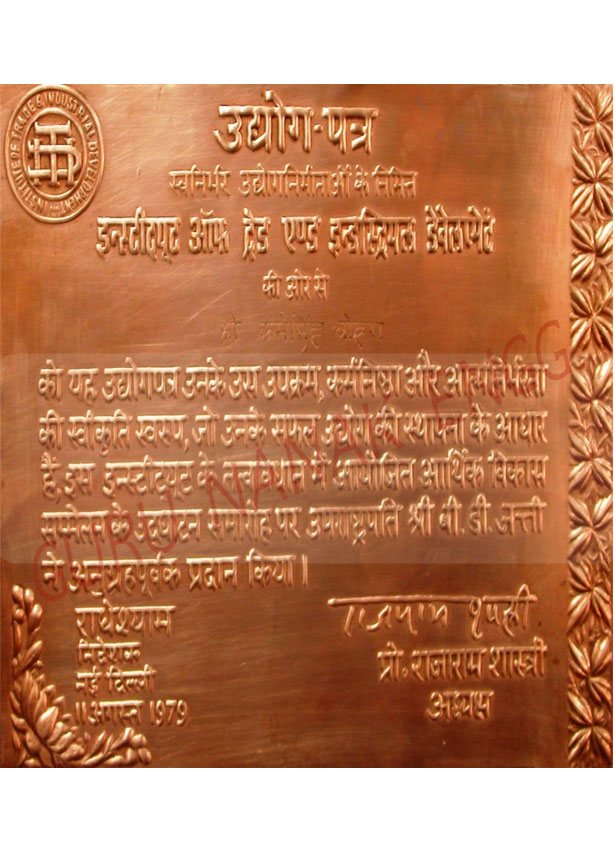 INSTITUTE OF TRADE & INDUSTRIAL DEVELOPMENT
उद्योग-पत्र
स्वनिर्भर उद्योगनिर्माताओं के निमित्त
इन्स्टीट्यूट ऑफ ट्रेड एण्ड इन्डस्ट्रियल डेवेलपमेंट
की ओर से
श्री
को यह उद्योगपत्र उनके उस उपक्रम, कर्मनिष्ठा और आत्मनिर्भरता
की स्वीकृति स्वरूप, जो उनके सफल उद्योग की स्थापना के आधार
है, इस इन्स्टीट्यूट के तत्वाधान में आयोजित आर्थिक विकास
सम्मेलन के उद्घाटन समारोह पर उपराष्ट्रपति श्री बी. डी. जत्ती
ने अनुग्रहपूर्वक प्रदान किया।
राधेश्याम
निदेशक
नई दिल्ली
11 अगस्त 1979
प्रो. राजाराम शास्त्री
अध्यक्ष
GURU NANAK ENGG